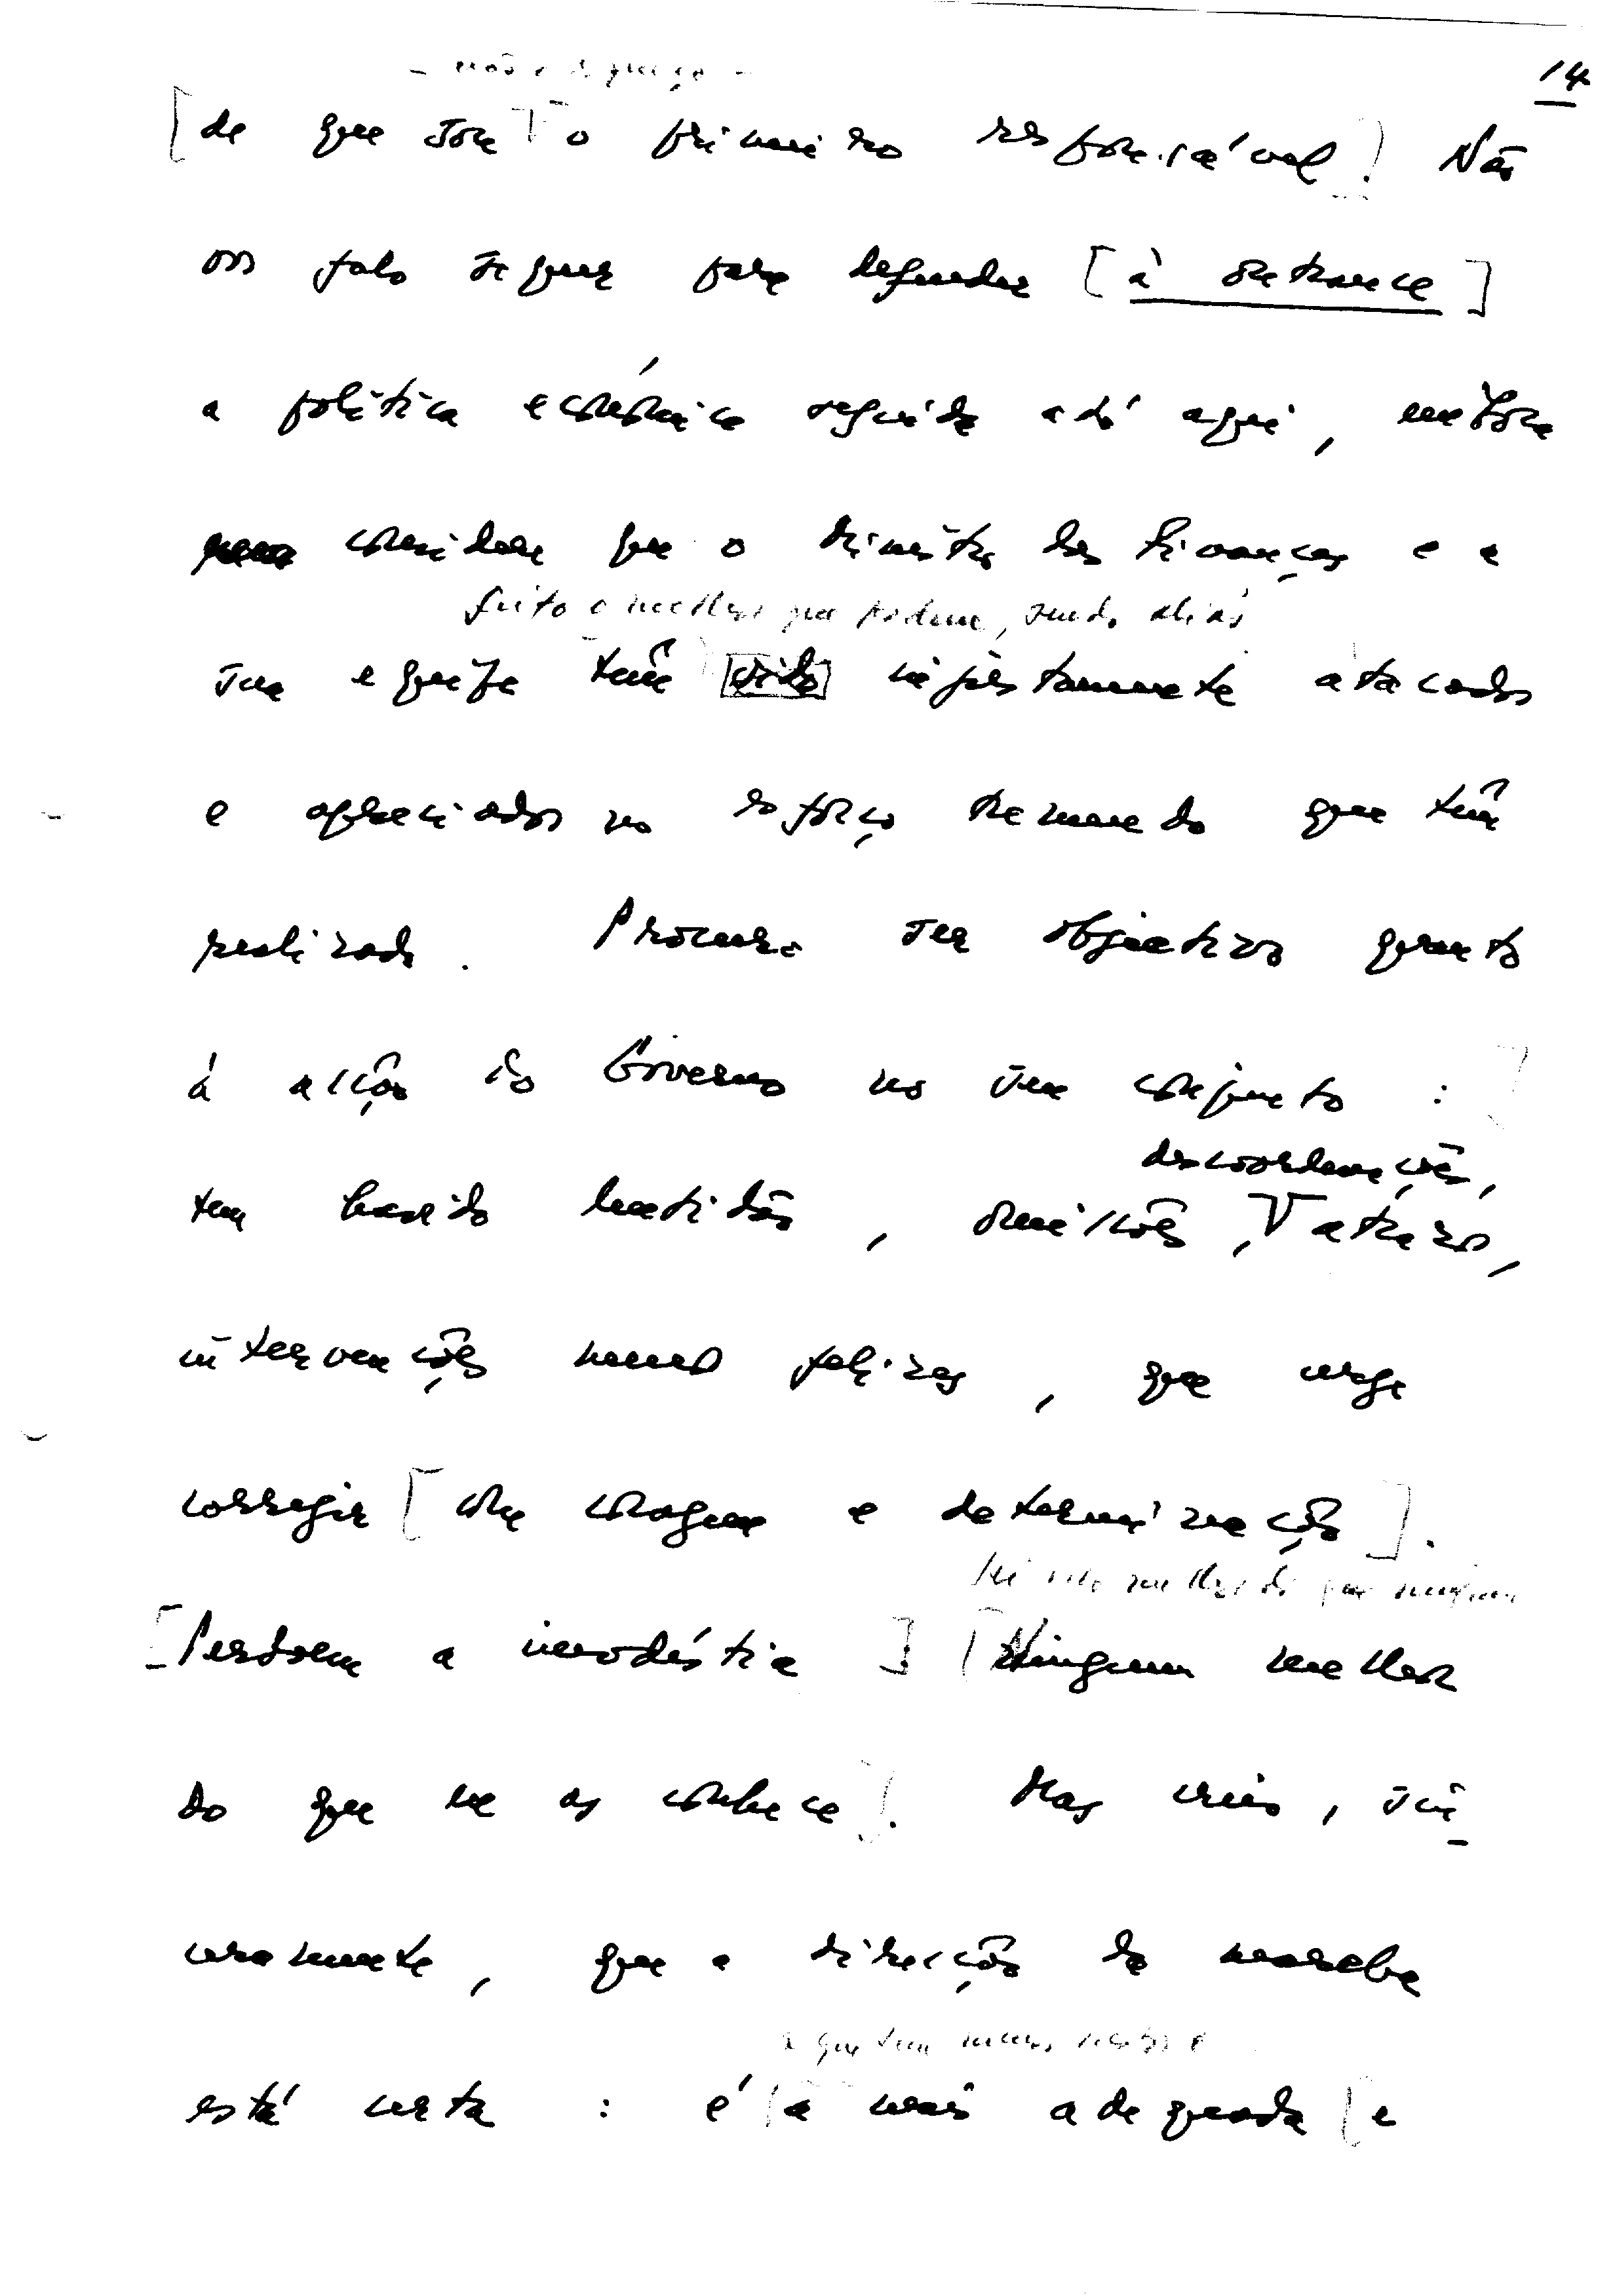 14
[de que sou o primeiro responsável]. Não
vos falo sequer para defender [à outrance]
a política económica seguida até aqui, embora
considere que o Ministro das Finanças e a
feito o melhor que podem, sendo aliás
sua equipa têm sido injustamente atacados
e apreciados no esforço tremendo que têm
realizado. Procuro ser objectivo quanto
à acção do Governo no seu conjunto:
descoordenações,
tem havido lentidão, omissões, atrasos,
intervenções menos felizes, que urge
corrigir [com coragem e determinação].
melhor do que ninguém
[Perdoem a imodéstia] [Ninguém melhor
do que eu as conhece]. Mas creio, sin-
ceramente, que a direcção da marcha
a que tem menos
está certa: é [a mais adequada [e